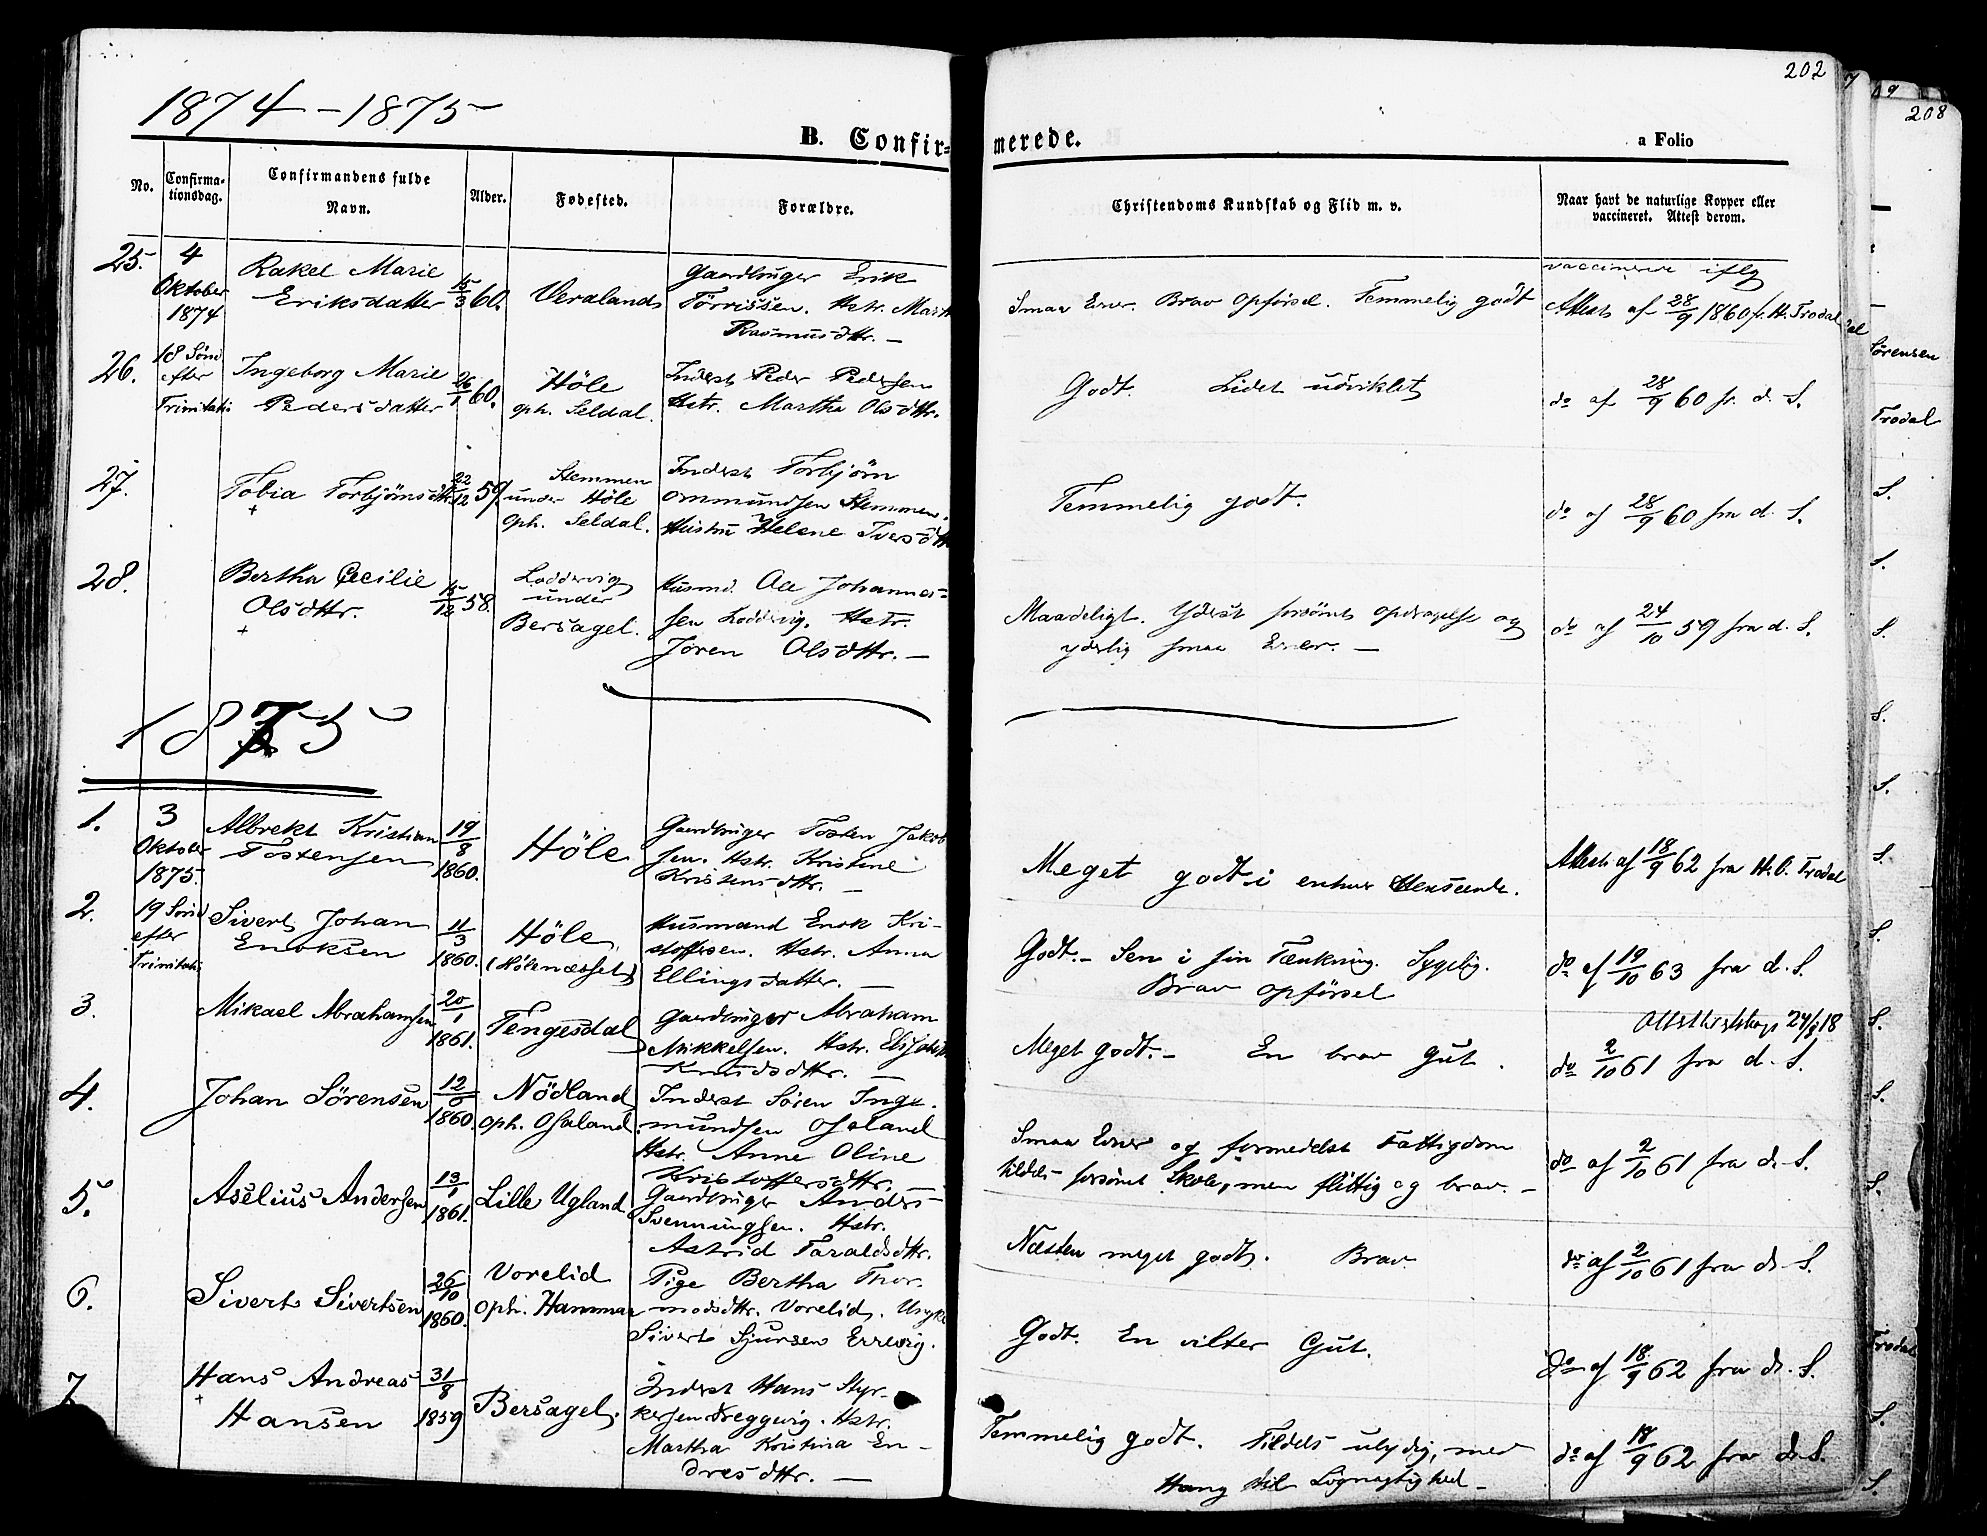 202
208
1874-1875
B. Confir-
merede.
a Folio
No.
Confirma-
tionsdag.
Confirmandens fulde
Navn.
Alder.
Fødested.
Forældre.
Christendoms Kundskab og Flid m. v.
Naar havt de naturlige Kopper eller
vaccineret. Attest derom.
25.
4
Oktober
1874
Rakel Marie
Eriksdatter
15/3 60.
Veraland
Gaardbruger Erik
Törrissen. Hstr. Marth
Rasmusdttr. —
Smaa Evner. Brav Opførsel. Temmelig godt
vaccineret iflg
Attest af 28/9 1860 fr. H. Trodal
26.
18 Sönd
efter
Trinitatis
Ingeborg Marie
Pedersdatter
26/1 60.
Höle
oph. Seldal.
Inderst Peder Pedersen
Hstr. Martha Olsdttr.
Godt. Lidet udviklet
do af 28/9 60 fr. d. S.
27.
Tobia Torbjörnsdttr.
+
22/12 59.
Stemmen
under Höle
oph. Seldal.
Inderst Torbjörn
Ommundsen Stemmen.
Hustru Helene Iversdttr
Temmelig godt.
do af 28/9 60 fra d. S.
28.
Bertha Cecilie
Olsdttr.
+
15/12 58.
Loddervig
under
Bersagel.
Husmd. Ole Johannes-
sen Loddervig. Hstr.
Jören Olsdttr. —
Maadeligt. Yderst forsömt Opdragelse og
yderlig smaa Evner. —
do af 24/10 59 fra d. S.
1875
1.
3
Oktober
1875.
Albrekt Kristian
Tostensen
19/8
1860.
Höle
Gaardbruger Tosten Jakob
sen. Hstr. Kristine
Kristensdttr. —
Meget godt i enhver Henseende.
Attest af 18/9 62 fra H. C. Trodal
2.
19 Sönd
efter
Trinitatis
Sivert Johan
Enoksen
11/3
1860.
Höle
(Hölenæsset)
Husmand Enok Kri-
stoffersen. Hstr. Anna
Ellingsdatter. —
Godt. - Sen i sin Tænkning. Sygelig.
Brav Opførsel
do af 19/10 63 fra d. S.
3.
Mikael Abrahamsen
20/1
1861.
Tengesdal
Gaardbruger Abraham
Mikkelsen. Hstr. Elisabeth
Knudsdttr. —
Meget godt. - En brav Gut.
24/18
do 2/10 61 fra d. S.
4.
Johan Sörensen
12/
1860
Nödland
oph. Osaland.
Inderst Sören Inge-
mundsen Osaland
Hstr. Anne Oline
Kristoffersdttr.
Smaa Evner og formedelst Fattigdom
tildels forsömt Skole, men flittig og brav. -
do af 2/10 61 fra d. S.
5.
Aselius Andersen
13/1
1861.
Lille Ugland
Gaardbruger Anders
Svenningsen. Hstr.
Astrid Taraldsdttr.
Næsten meget godt. Brav
do af 2/10 61 fra d. S.
6.
Sivert Sivertsen
26/10
1860.
Vorelid
oph. Hammar
Pige Bertha Thor-
modsdttr. Vorelid. Ungk.
Sivert Sjursen Errevig.
Godt. En vilter Gut.
do af 18/9 62 fra d. S.
7
Hans Andreas
+
Hansen
31/8
1859
Bersagel.
Inderst Hans Styr-
kersen Dreggevig. Hstr.
Martha Kristina En-
dresdttr. —
Temmelig godt. Tildels ulydig, med
Hang til Lögnagtighed -
do af 17/9 62 fra d. S.
Sörensen
Trodal
S.
S.
S.
S.
S.
S.
S.
S.
S.
S.
Trodal
S.
S.